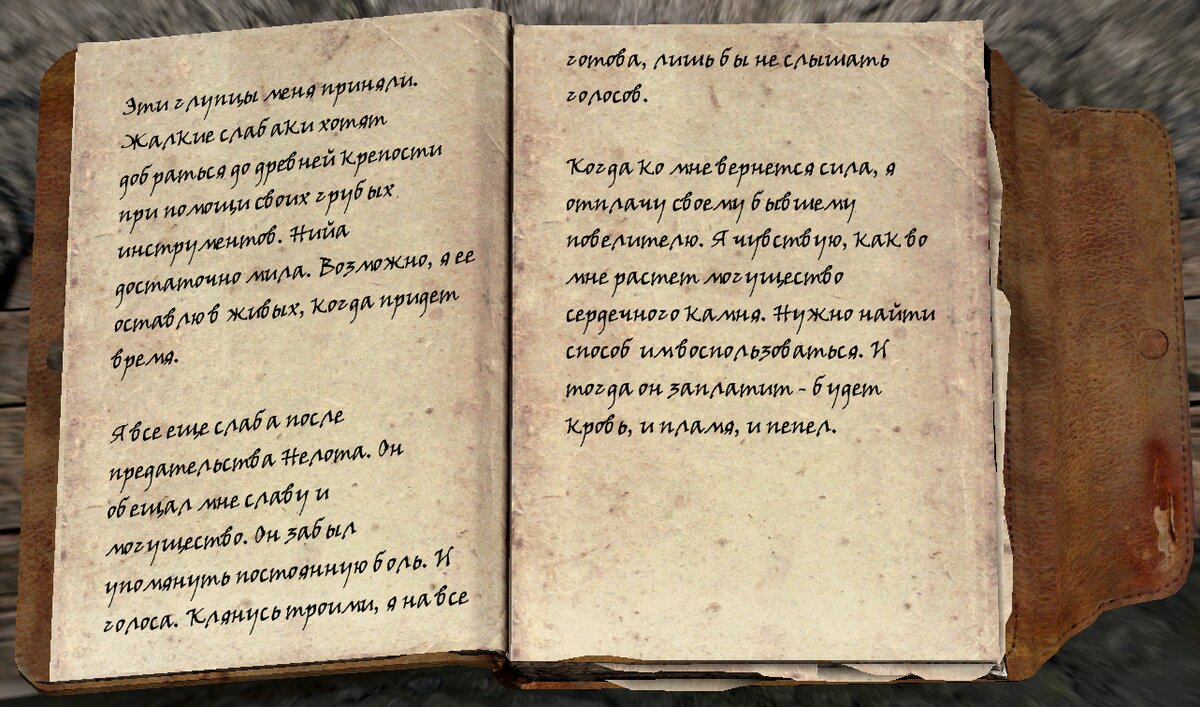 Эти глупцы меня приняли.
Жалкие слабаки хотят
добраться до древней крепости
при помощи своих грубых
инструментов. Нийа
достаточно мила. Возможно, я ее
оставлю в живых, когда придет
время.
Я все еще слаба после
предательства Нелота. Он
обещал мне славу и
могущество. Он забыл
упомянуть постоянную боль. И
голоса. Клянусь троими, я на все
готова, лишь бы не слышать
голосов.
Когда ко мне вернется сила, я
отплачу своему бывшему
повелителю. Я чувствую, как во
мне растет могущество
сердечного камня. Нужно найти
способ им воспользоваться. И
тогда он заплатит - будет
кровь, и пламя, и пепел.